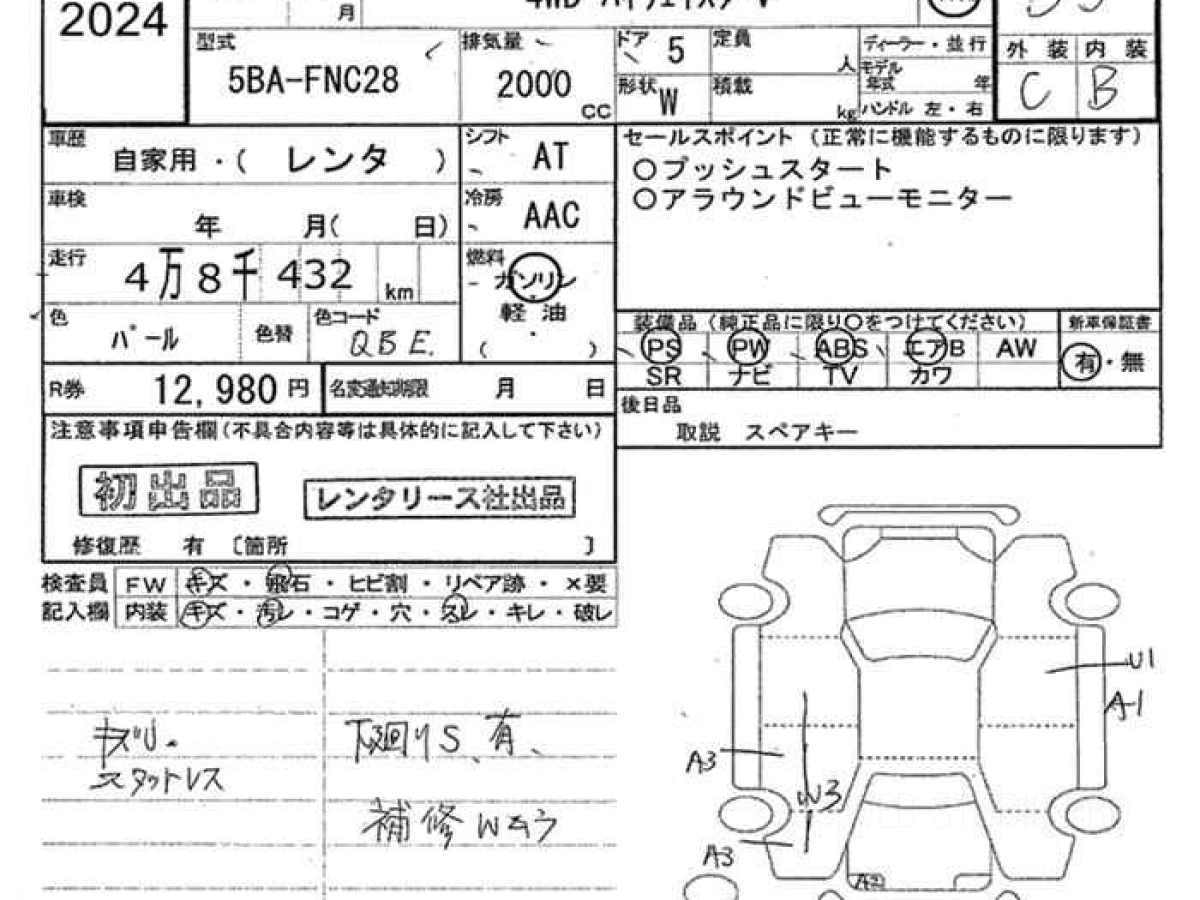 2024
月
4WD ハイウェイスターV
型式
5BA-FNC28
排気量
2000
CC
ドア
5
定員
人
形状
W
積載
kg
ディーラー・並行
モデル年式
年
ハンドル 左・右
外装 内装
C B
車歴
自家用・( レンタ )
シフト
AT
セールスポイント (正常に機能するものに限ります)
〇プッシュスタート
〇アラウンドビューモニター
車検
年 月( 日)
冷房
AAC
走行
4万8千432
km
燃料
ガソリン
軽油
( )
色
パール
色替
色コード
QBE.
装備品 (純正品に限り〇をつけてください)
新車保証書
PS PW ABS エアB AW
SR ナビ TV カワ
有・無
R券
12,980 円
名変通知期限
月 日
後日品
取説 スペアキー
注意事項申告欄(不具合内容等は具体的に記入して下さい)
初出品
レンタリース社出品
修復歴 有 〔箇所 〕
検査員 FW キズ・飛石・ヒビ割・リペア跡・×要
記入欄 内装 キズ・汚レ・コゲ・穴・スレ・キレ・破レ
スタットレス
下廻りS有、
補修Wムラ
U1
A-1
A3
W3
A3
A2